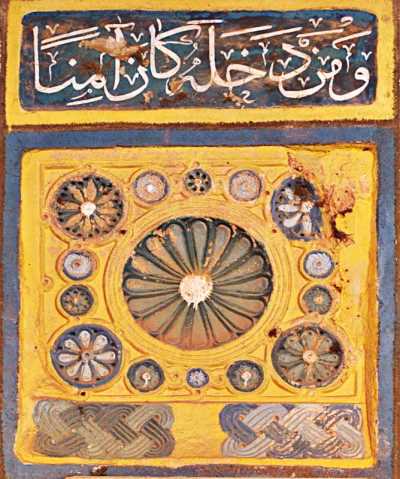 وَمَنْ دَخَلَهُ كَانَ آمِنًا